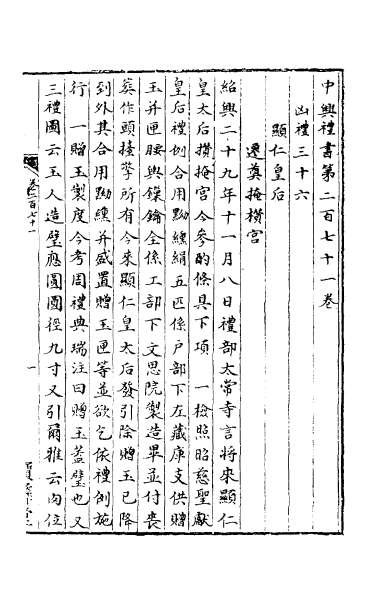 中興禮書第二百七十一卷
凶禮三十六
顯仁皇后
遷奠掩攢宮
紹興二十九年十一月八日禮部太常寺言將來顯仁
皇太后攢掩宮今參酌條具下項 一檢照昭慈聖獻
皇后禮例合用黝纁絹五匹係戶部下左藏庫支供贈
玉并匣腰輿鏁鑰全係工部下文思院製造畢並付喪
葬作頭擡擎所有今來顯仁皇太后發引除贈玉已降
到外其合用黝纁并盛置贈玉匣等並欲乞依禮例施
行 一贈玉製度今考周禮典瑞注曰贈玉蓋璧也又
三禮圖云玉人造璧應圓圓徑九寸又引爾雅云肉位
卷二百七十一
一